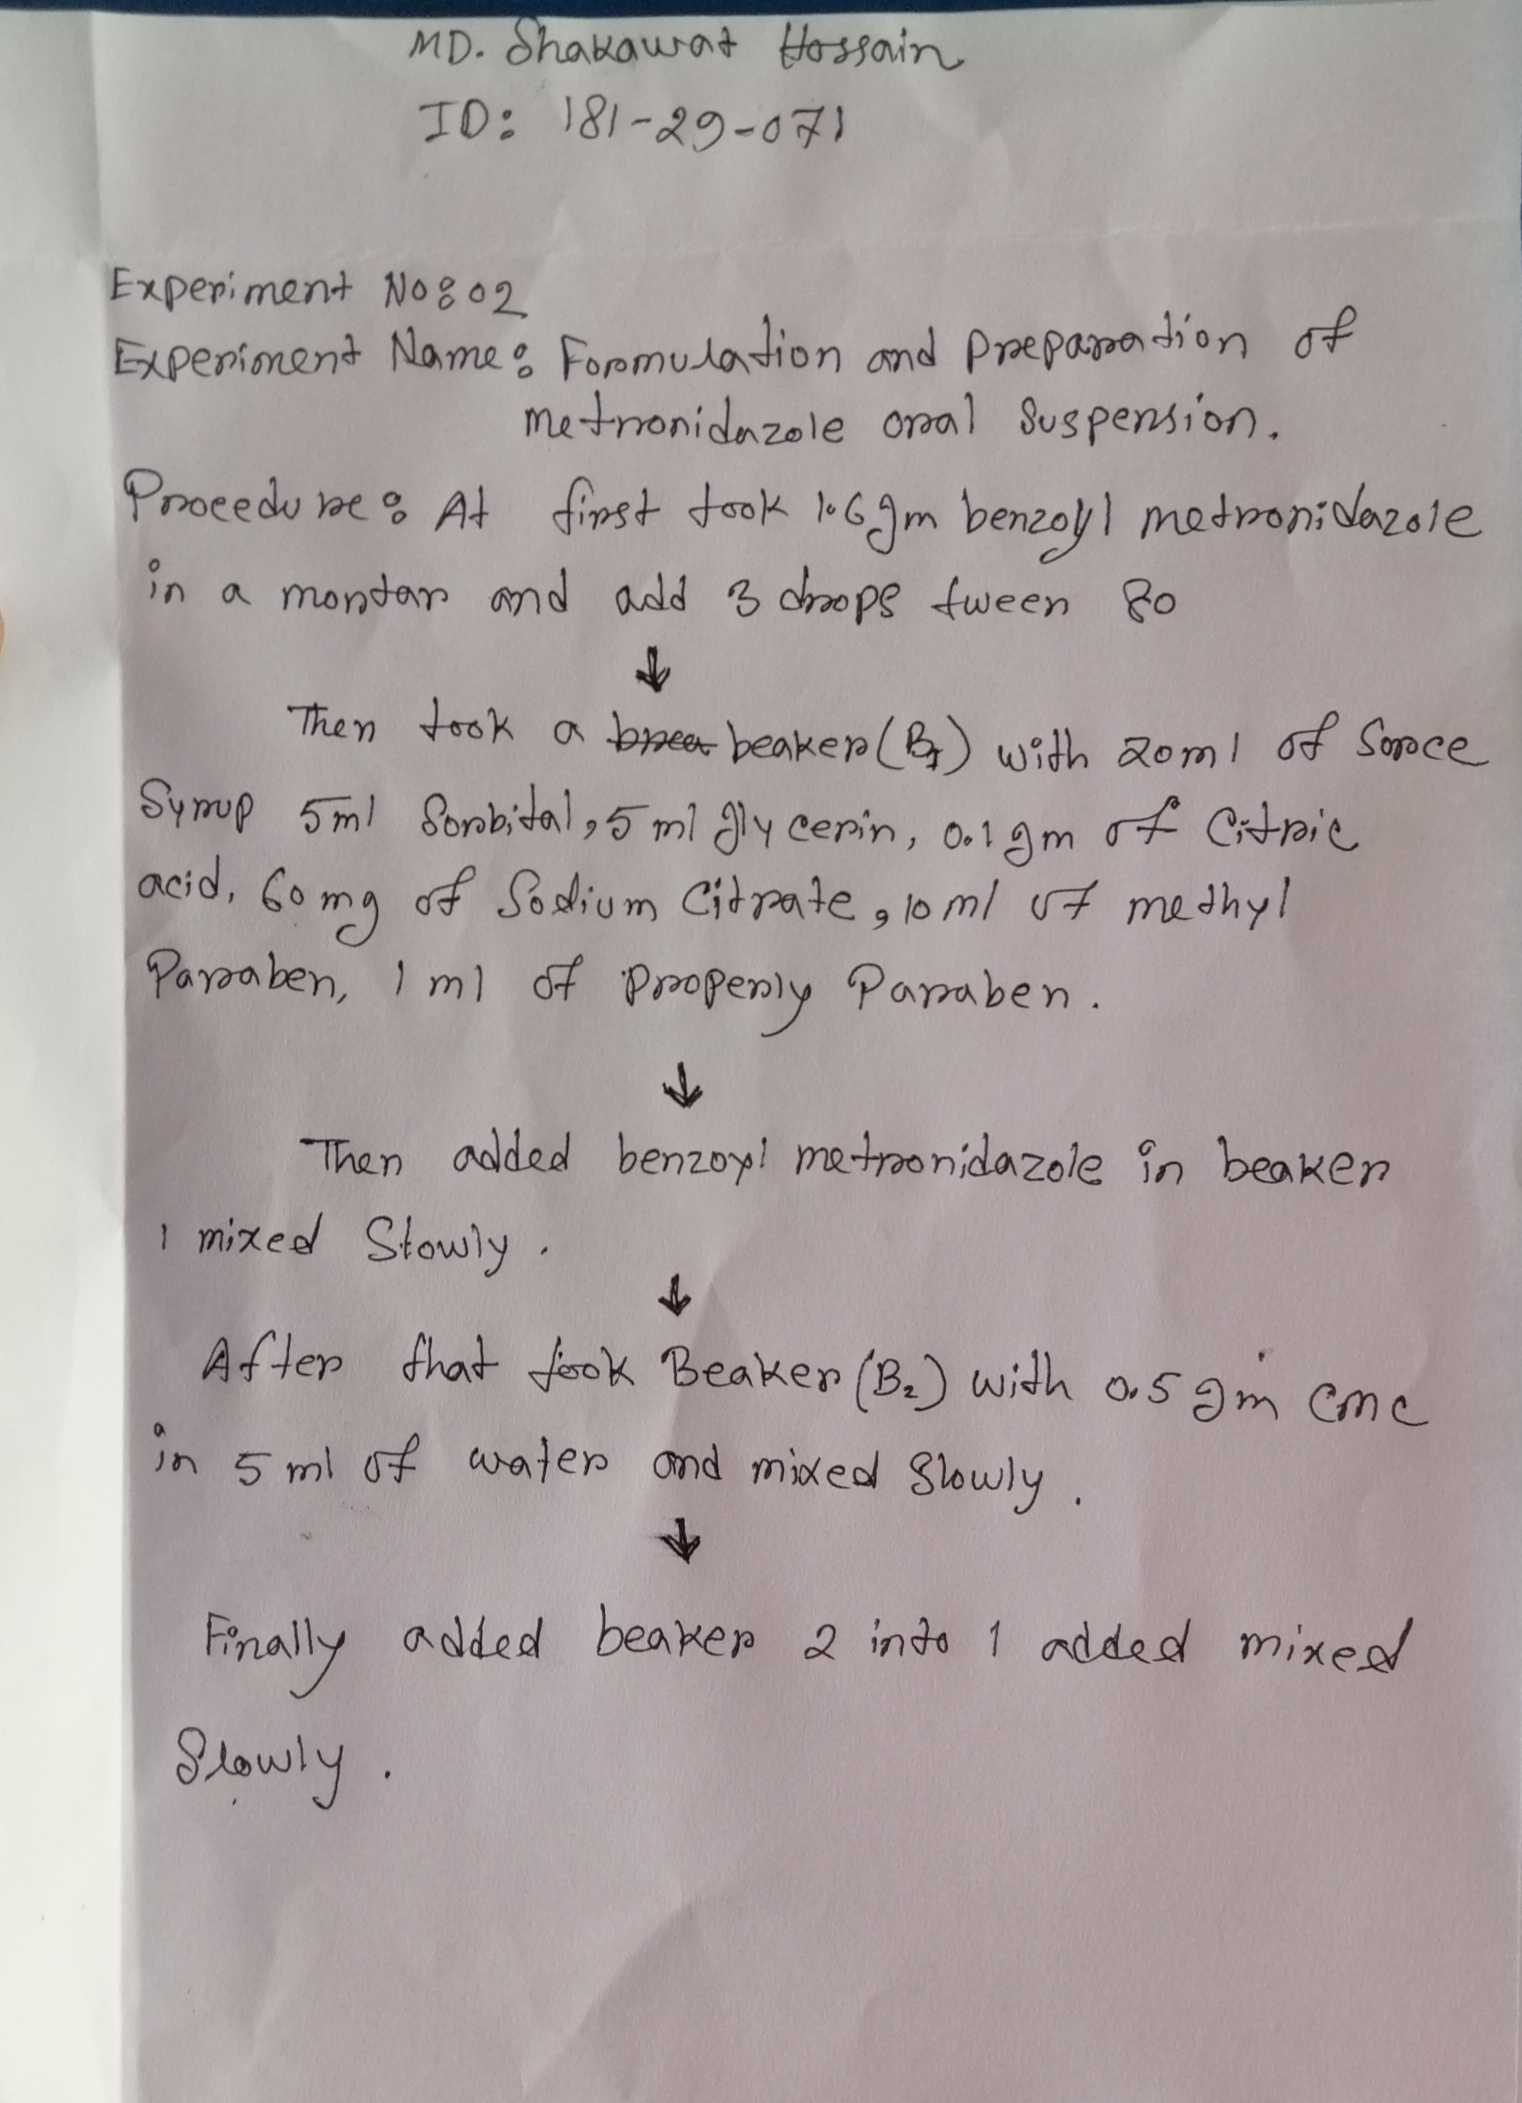 MD. Shakawat Hossain
ID: 181-29-071
Experiment No: 02
Experiment Name: Formulation and Preparation of
metronidazole oral Suspension.
Procedure: At first took 1.6 gm benzoyl metronidazole
in a mortar and add 3 drops tween 80
↓
Then took a beaker (B1) with 20 ml of Sorce
Syrup 5 ml Sorbital, 5 ml glycerin, 0.1 gm of Citric
acid, 60 mg of Sodium Citrate, 10 ml of methyl
Paraben, 1 ml of Properly Paraben.
↓
Then added benzoyl metronidazole in beaker
1 mixed Slowly.
↓
After that took Beaker (B2) with 0.5 gm cmc
in 5 ml of water and mixed Slowly.
↓
Finally added beaker 2 into 1 added mixed
Slowly.